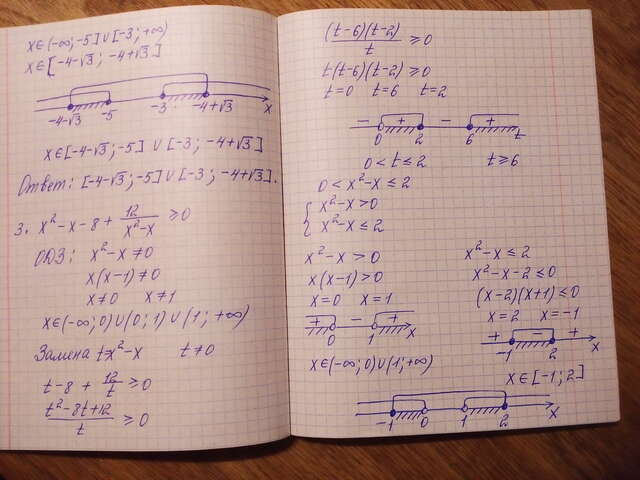 x∈(-∞;-5]∪[-3;+∞)
x∈[-4-√3; -4+√3]
-4-√3 -5 -3 -4+√3 x
x∈[-4-√3;-5] ∪ [-3; -4+√3]
Ответ: [-4-√3;-5]∪[-3; -4+√3].
3. x²-x-8+12/(x²-x) ≥0
ОДЗ: x²-x≠0
x(x-1)≠0
x≠0 x≠1
x∈(-∞;0)∪(0;1)∪(1;+∞)
Замена t=x²-x t≠0
t-8+12/t ≥0
(t²-8t+12)/t ≥0
(t-6)(t-2)/t ≥0
t(t-6)(t-2)≥0
t=0 t=6 t=2
- + - +
0 2 6 t
0<t≤2 t≥6
0<x²-x≤2
{ x²-x>0
x²-x≤2
x²-x>0
x(x-1)>0
x=0 x=1
+ - +
0 1 x
x∈(-∞;0)∪(1;+∞)
x²-x≤2
x²-x-2≤0
(x-2)(x+1)≤0
x=2 x=-1
+ - +
-1 2 x
x∈[-1;2]
-1 0 1 2 x